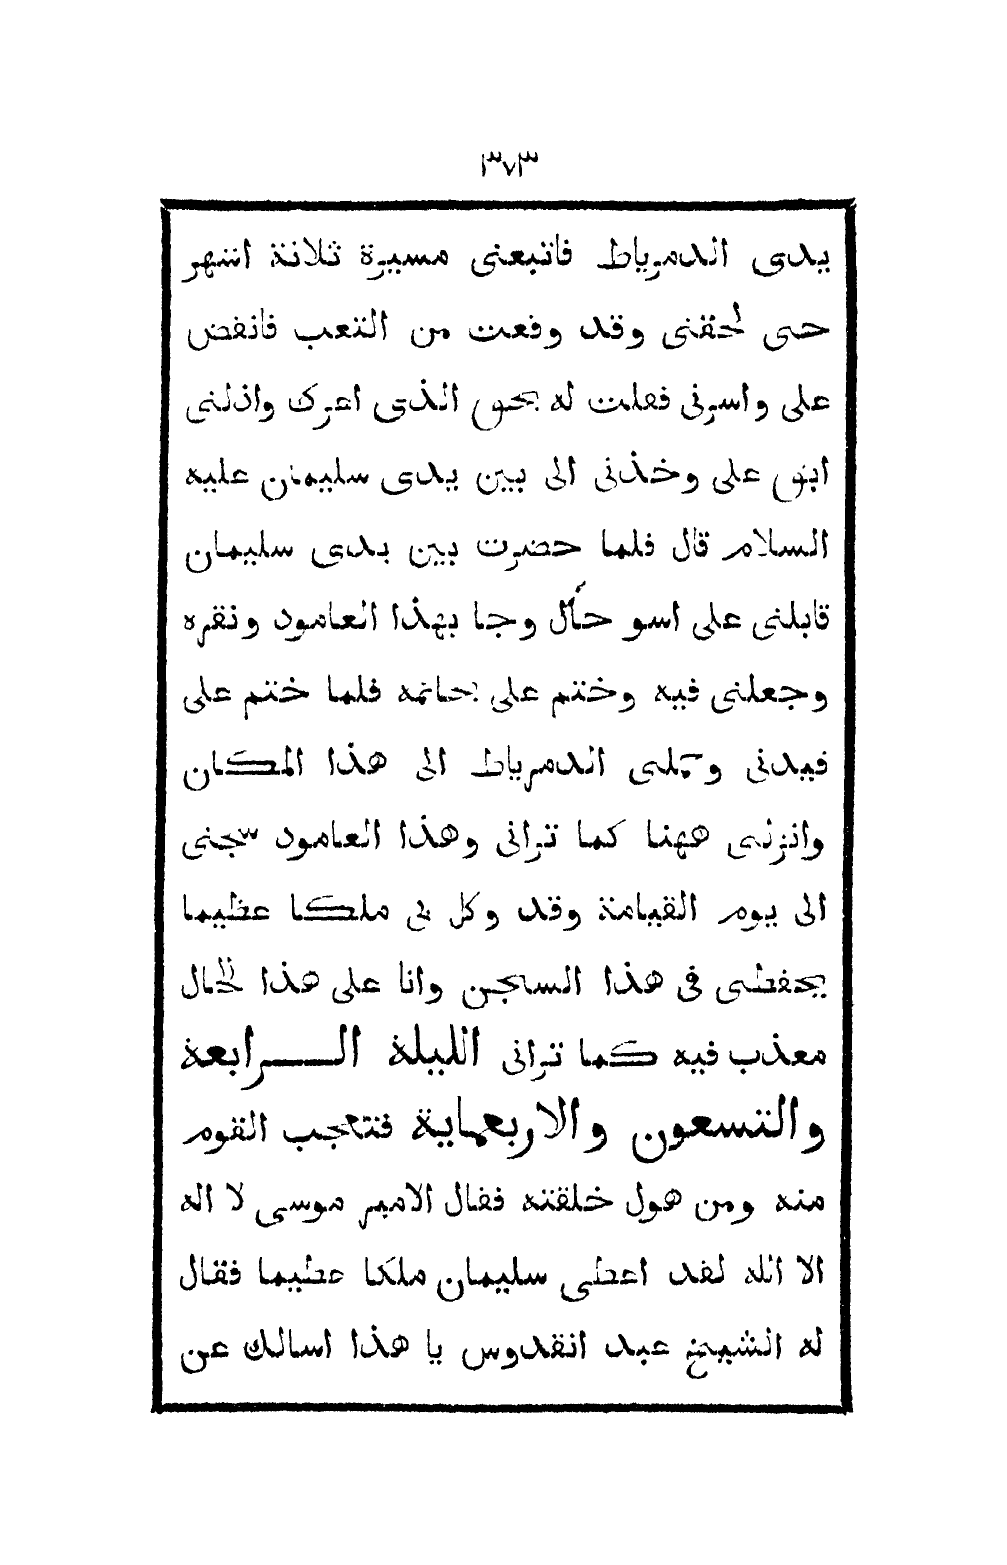 ٣٧٣
يدى الدمرياط فاتبعنى مسيرة ثلاثة اشهر
حتى لحقنى وقد وقعت من التعب فانقض
على واسرنى فقلت له بحق الذى اعزك واذلنى
ابق على وخذنى الى بين يدى سليمان عليه
السلام قال فلما حضرت بين يدى سليمان
قابلنى على اسو حال وجا بهذا العامود ونقره
وجعلنى فيه وختم على بخاتمه فلما ختم على
قيدنى وحملنى الدمرياط الى هذا المكان
وانزلنى ههنا كما ترانى وهذا العامود سجنى
الى يوم القيامة وقد وكل بى ملكا عظيما
يحفظنى فى هذا السجن وانا على هذا الحال
معذب فيه كما ترانى الليلة الرابعة
والتسعون والاربعماية فتعجب القوم
منه ومن هول خلقته فقال الامير موسى لا اله
الا الله لقد اعطى سليمان ملكا عظيما فقال
له الشيخ عبد القدوس يا هذا اسالك عن